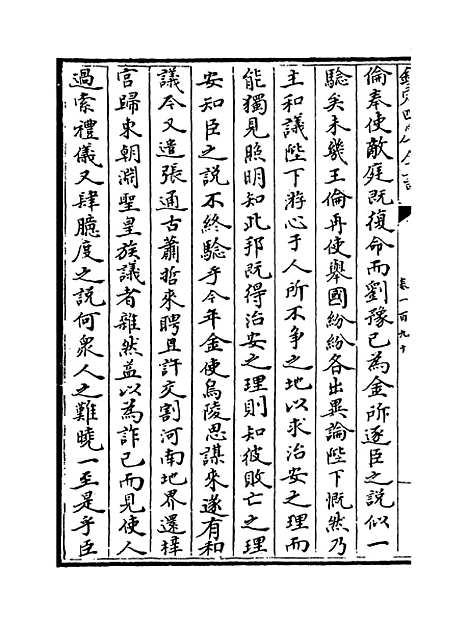 欽定四庫全書
卷一百九十
倫奉使敵庭既復命而劉豫已為金所逐臣之説似一
驗矣未幾王倫再使舉國紛紛各出異論陛下慨然乃
主和議陛下游心于人所不争之地以求治安之理而
能獨見照明知此邦既得治安之理則知彼敗亡之理
安知臣之説不終驗乎今年金使烏陵思謀來遂有和
議今又遣張通古蕭哲來聘且許交割河南地界還梓
宫歸東朝淵聖皇族議者雜然益以為詐已而見使人
過索禮儀又肆臆度之説何衆人之難曉一至是乎臣